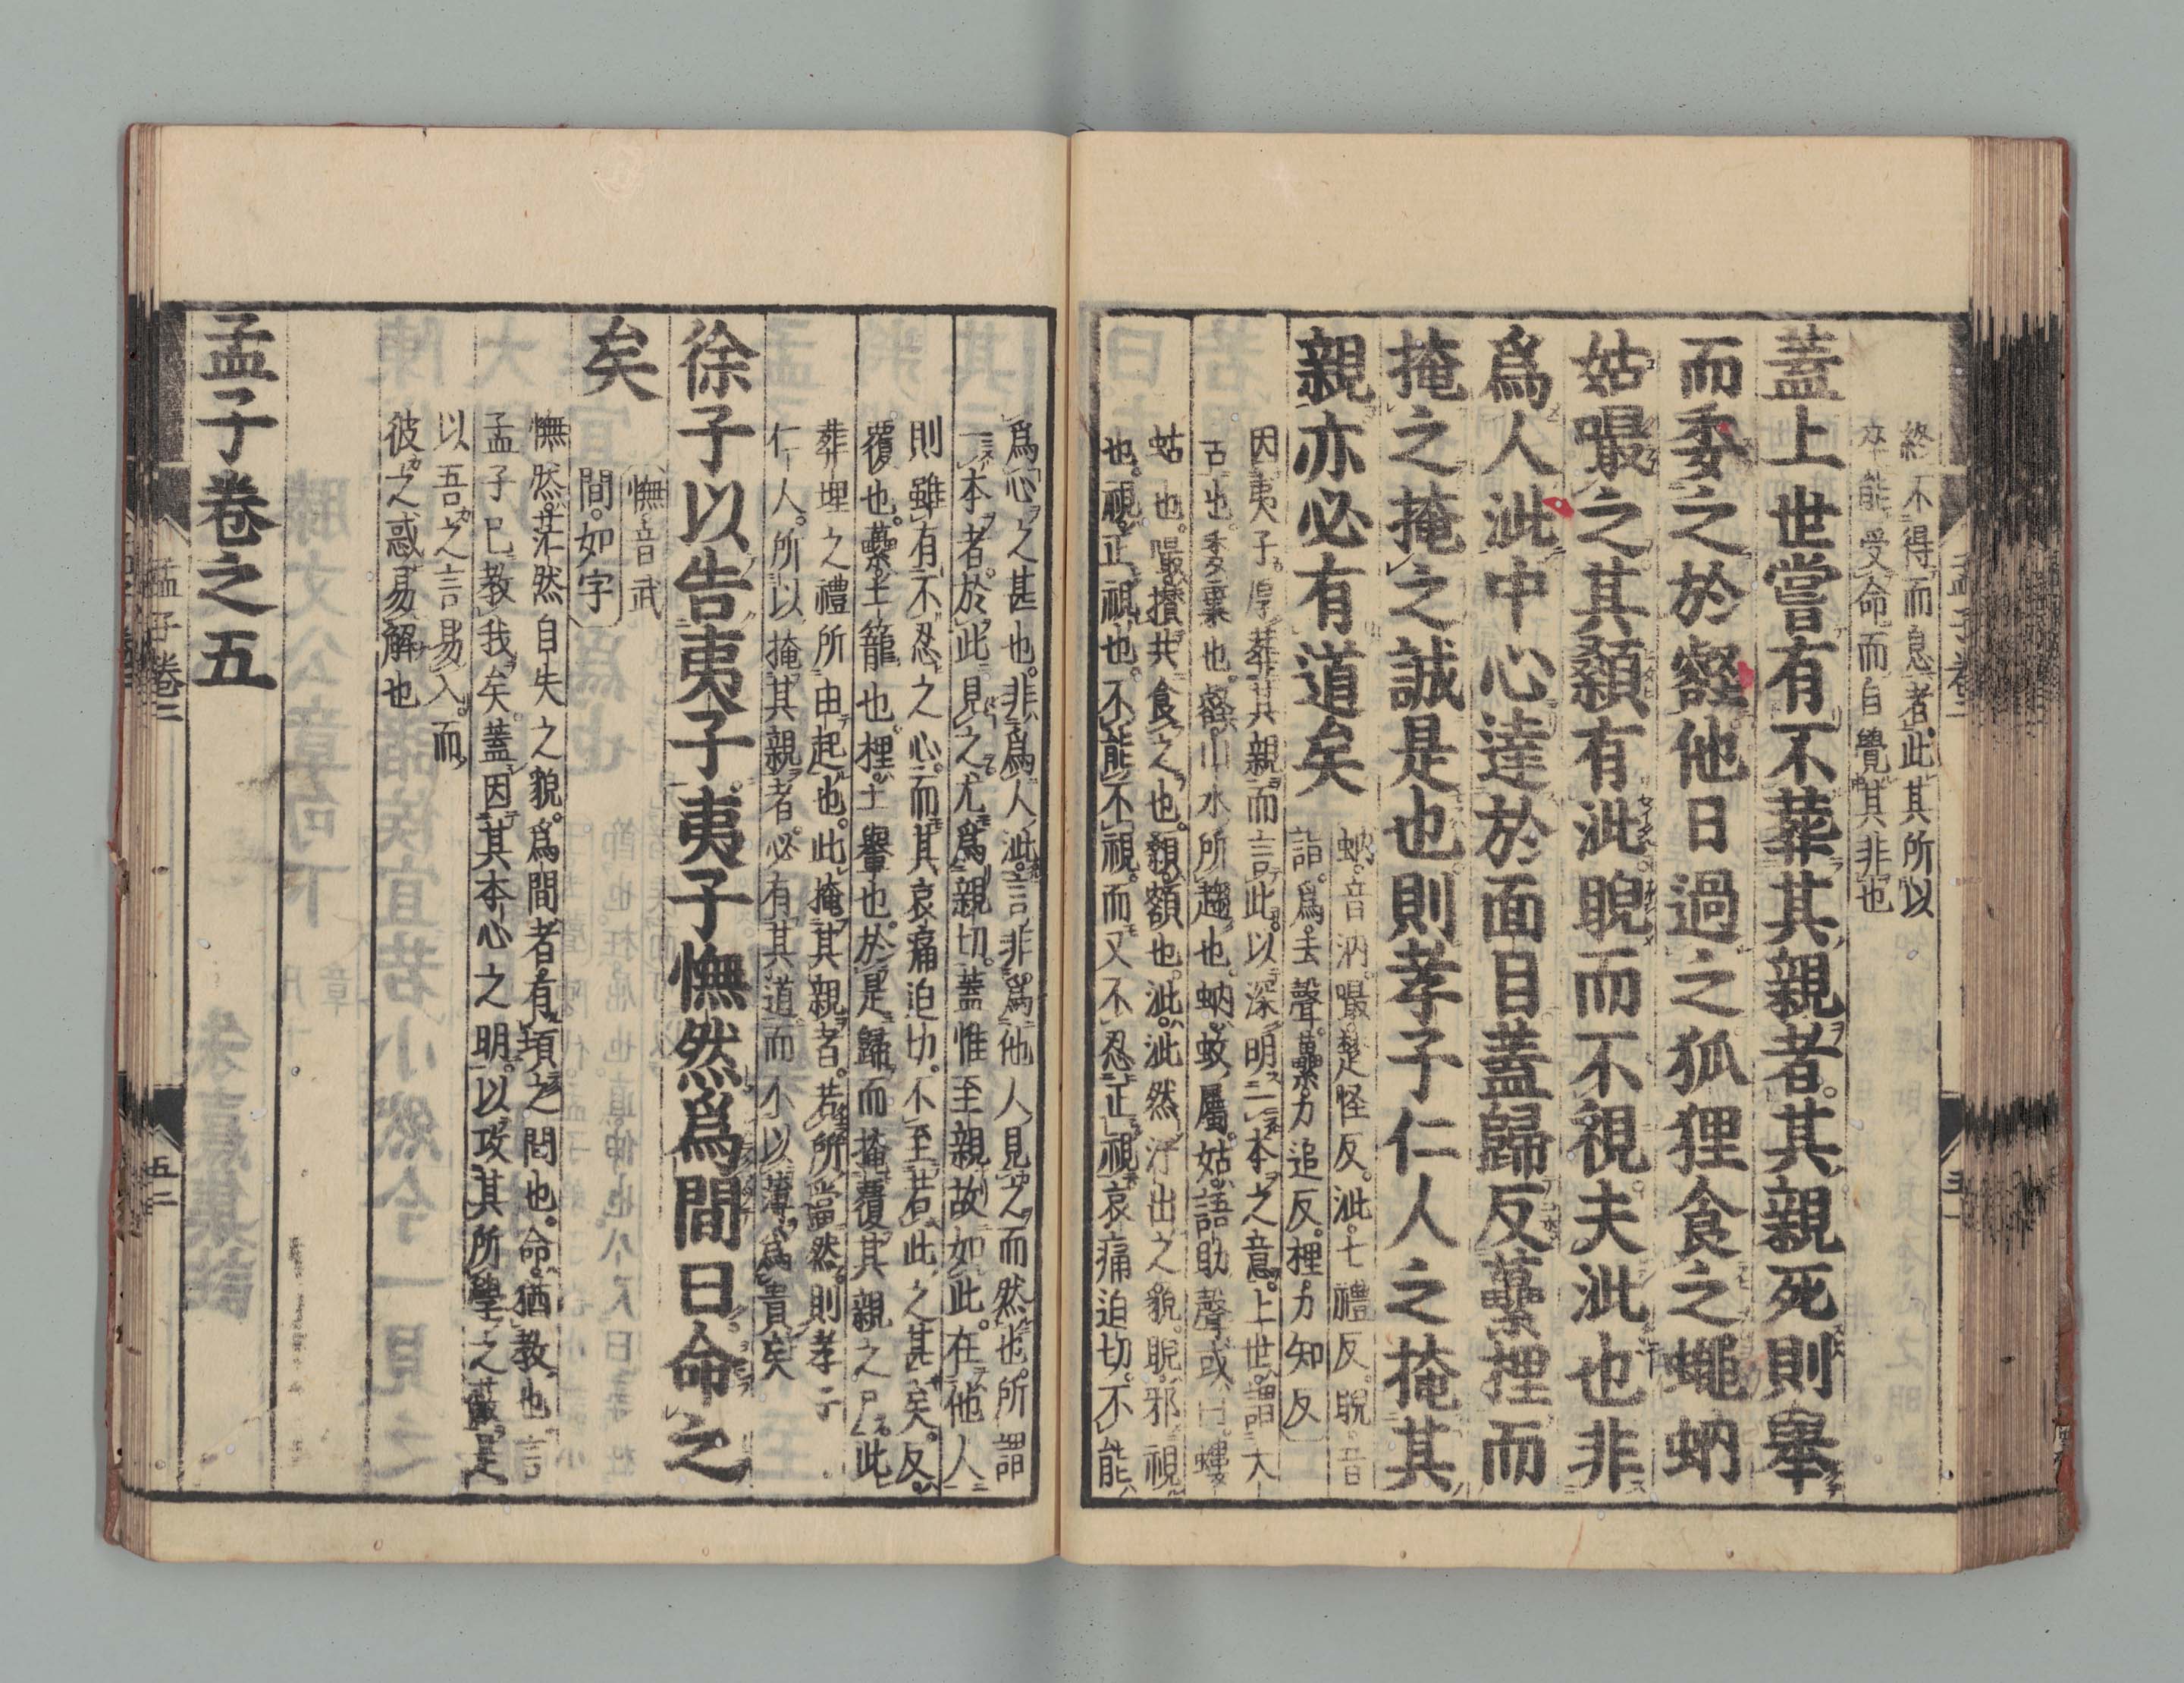 終不得而息者此其所以
卒能受命而自覺其非也
蓋上世嘗有不葬其親者其親死則擧
而委之於壑他日過之狐狸食之蠅蚋
姑嘬之其顙有泚睨而不視夫泚也非
爲人泚中心達於面目蓋歸反虆梩而
掩之掩之誠是也則孝子仁人之掩其
親亦必有道矣
蚋音汭嘬楚怪反泚七禮反睨音
詣爲去聲虆力追反梩力知反
因夷子厚葬其親而言此以深明一本之意上世謂大
古也委棄也壑山水所趨也蚋蚊屬姑語助聲或曰螻
蛄也嘬攢共食之也顙額也泚泚然汗出之貌睨邪視
也視正視也不能不視而又不忍正視哀痛迫切不能
爲心之甚也非爲人泚言非爲他人見之而然也所謂
一本者於此見之尤爲親切蓋惟至親故如此在他人
則雖有不忍之心而其哀痛迫切不至若此之甚矣反
覆也虆土籠也梩土轝也於是歸而掩覆其親之尸此
葬埋之禮所由起也此掩其親者若所當然則孝子
仁人所以掩其親者必有其道而不以薄爲貴矣
徐子以告夷子夷子憮然爲間曰命之
矣
憮音武
間如字
憮然茫然自失之貌爲間者有頃之間也命猶教也言
孟子已教我矣蓋因其本心之明以攻其所學之蔽是
以吾之言易入而
彼之惑易解也
孟子卷之五
孟子卷三
五二